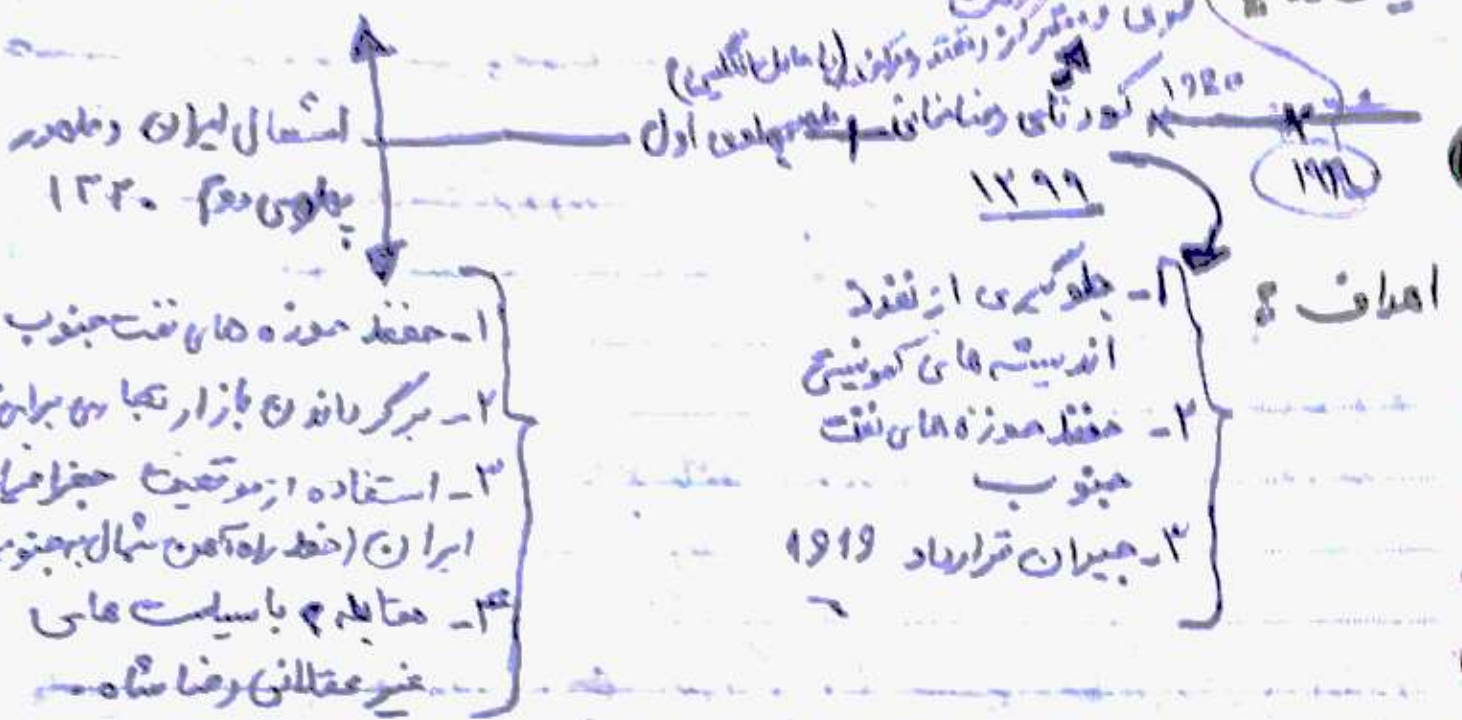 قوی و متمرکز
(با عامل انگلیس)
کودتای رضاخانی پهلوی اول
۱۲۹۹
اهداف :
۱- جلوگیری از نفوذ
اندیشه های کمونیستی
۲- حفظ حوزه های نفت
جنوب
۳- جبران قرارداد ۱۹۱۹
اشغال ایران و ظهور
پهلوی دوم ۱۳۲۰
۱- حفظ حوزه های نفت جنوب
۲- برگرداندن بازار تجاری برای
۳- استفاده از موقعیت
ایران (خط راه آهن شمال به جنوب
۴- مقابله با سیاست های
غیر عقلانی رضا شاه.